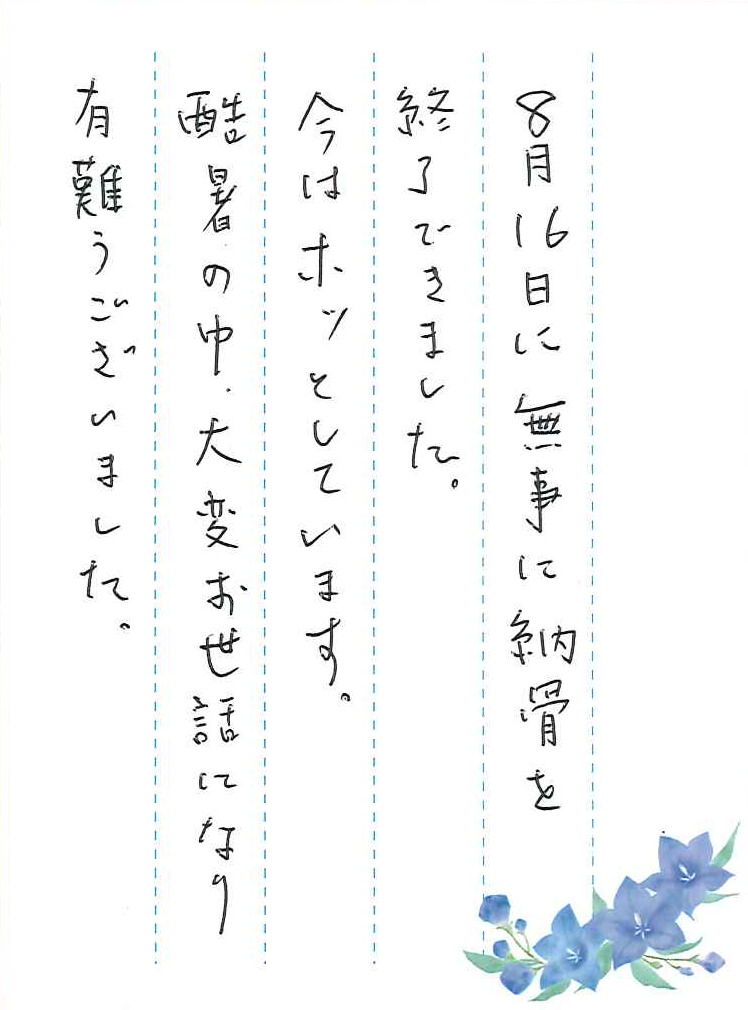 8月16日に無事に納骨を
終了できました。
今はホッとしています。
酷暑の中、大変お世話になり
有難うございました。